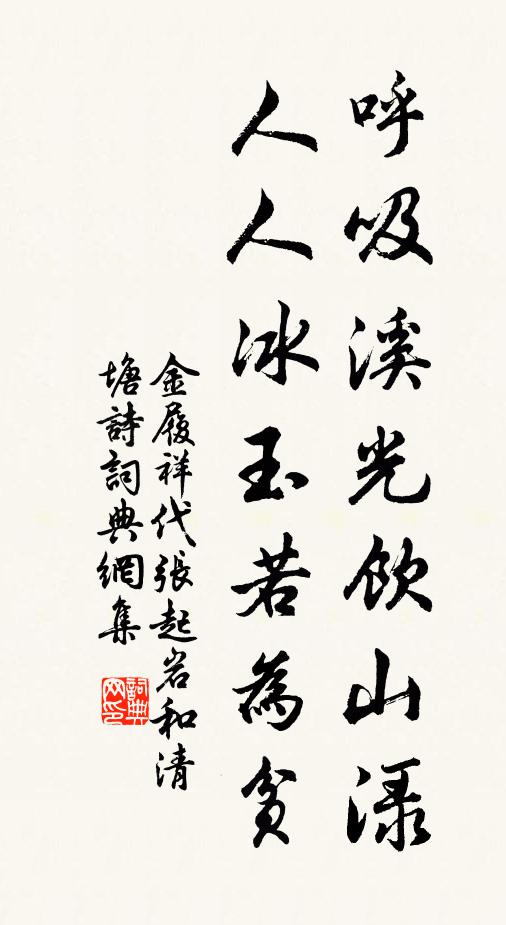 呼吸溪光飲山渌
人人冰玉若為貧
金履祥代張起岩和清
塘詩詞典網集
詞典網印